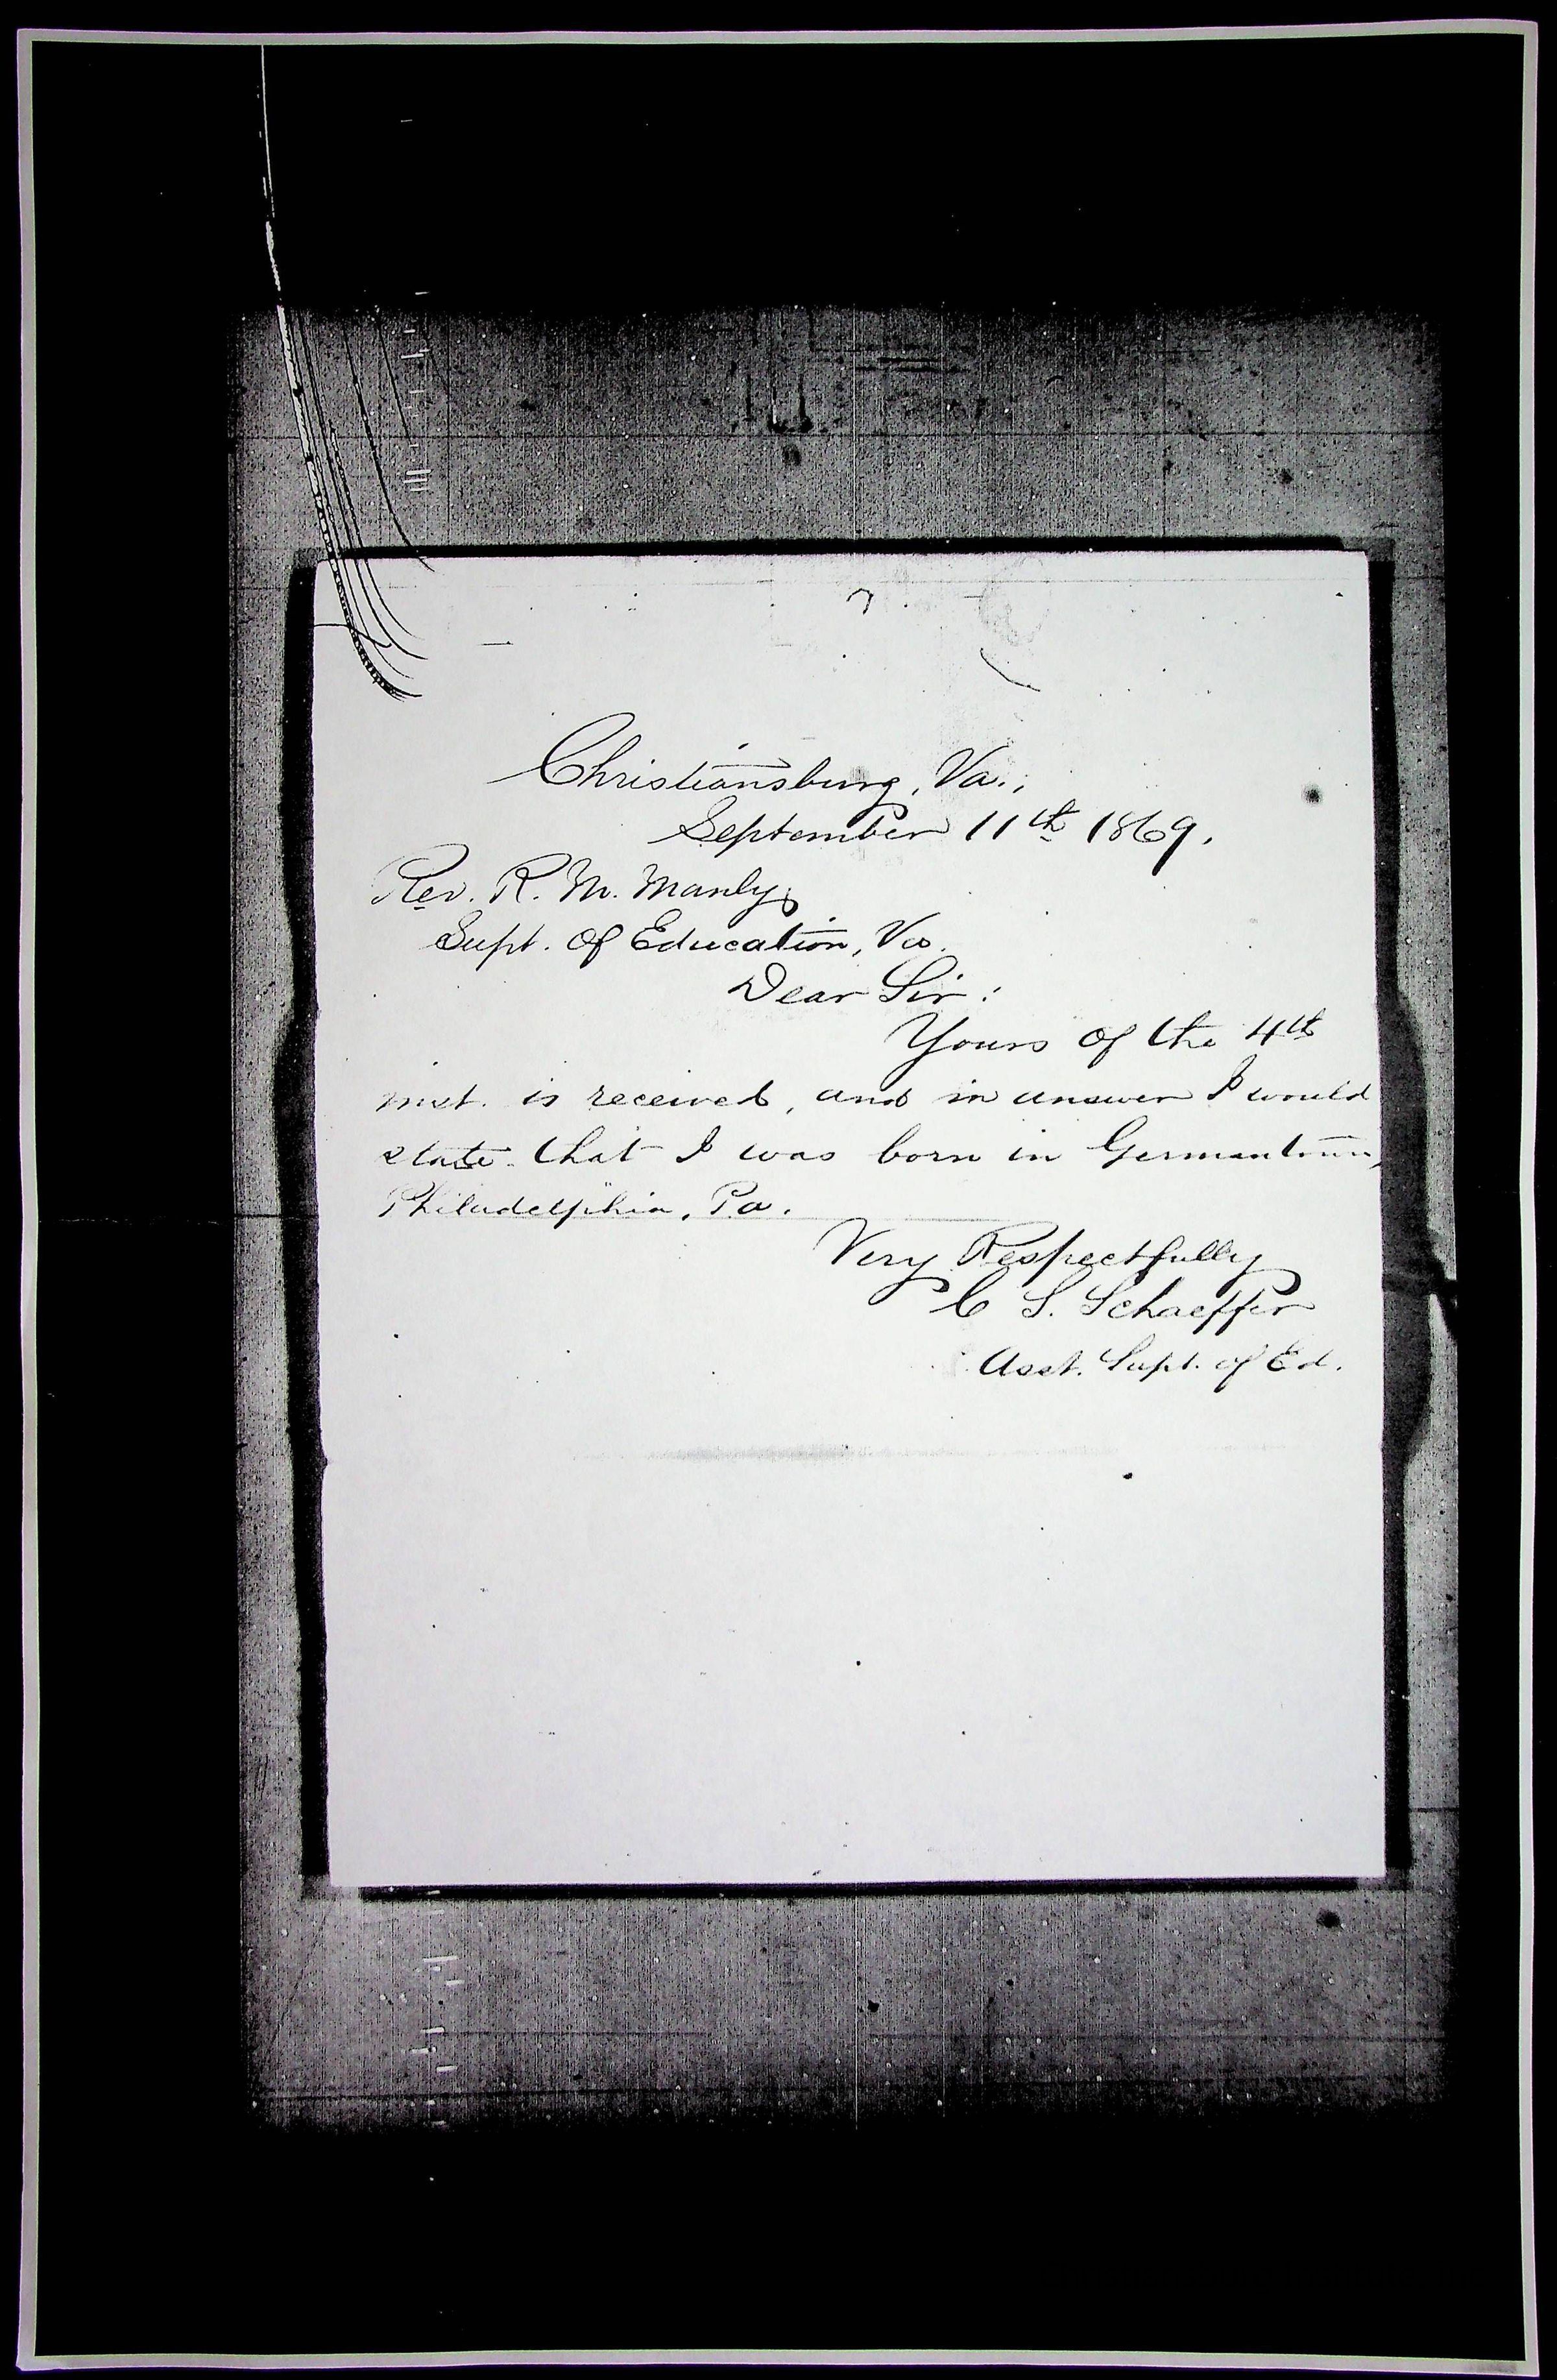 Christiansburg, Va.,
September 11th 1869.
Rev. R. M. Manly,
Supt. of Education, Va.
Dear Sir:
Yours of the 4th
inst. is received, and in answer I would
state that I was born in Germantown,
Philadelphia, Pa.
Very Respectfully
C S. Schaeffer
Asst. Supt. of Ed.